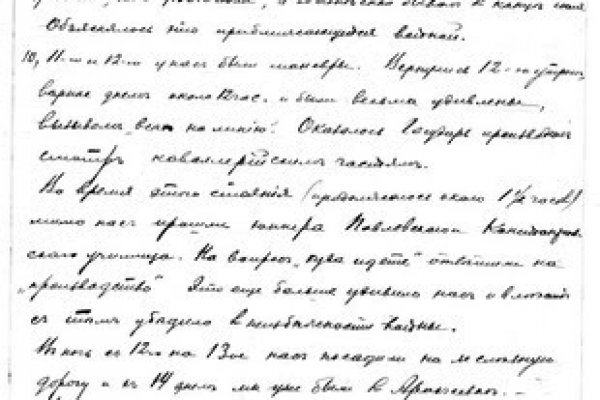 Объяснялось это приближающейся войной.
10, 11-го и 12-го у нас были маневры. Вернулись 12-го утром,
вернее днем около 12 час. и были весьма удивлены,
вызовом „всех на линию“. Оказалось Государь производил
смотр кавалерийским частям.
Во время этого стояния (продолжалось около 1½ часов)
мимо нас прошли юнкера Павловского
ского училища. На вопрос „куда идете“ ответили на
„производство“ Это еще больше удивило нас и
с тем убедило в неизбежности войны.
В ночь с 12го на 13ое нас посадили на железную
дорогу и к 14 днем мы уже были в